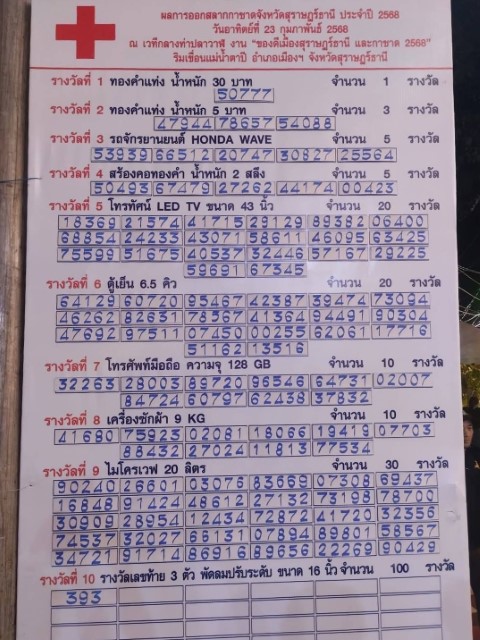 ผลการออกสลากกาชาดจังหวัดสุราษฎร์ธานี ประจำปี 2568
วันอาทิตย์ที่ 23 กุมภาพันธ์ 2568
ณ เวทีกลางท่าปลาวาฬ งาน "ของดีเมืองสุราษฎร์ธานี และกาชาด 2568"
ริมเขื่อนแม่น้ำตาปี อำเภอเมืองฯ จังหวัดสุราษฎร์ธานี
รางวัลที่ 1 ทองคำแท่ง น้ำหนัก 30 บาท จำนวน 1 รางวัล
50777
รางวัลที่ 2 ทองคำแท่ง น้ำหนัก 5 บาท จำนวน 3 รางวัล
47944 78657 54088
รางวัลที่ 3 รถจักรยานยนต์ HONDA WAVE จำนวน 5 รางวัล
53939 66512 20747 30827 25564
รางวัลที่ 4 สร้อยคอทองคำ น้ำหนัก 2 สลึง จำนวน 5 รางวัล
50493 67479 27262 44174 00423
รางวัลที่ 5 โทรทัศน์ LED TV ขนาด 43 นิ้ว จำนวน 20 รางวัล
18369 21574 41715 29129 89382 06400
68854 24233 43071 58611 46095 63425
75599 51675 40537 32446 57167 29225
59691 67345
รางวัลที่ 6 ตู้เย็น 6.5 คิว จำนวน 20 รางวัล
64129 60720 95467 42387 39474 73094
46262 82631 78567 41364 94491 90304
47692 97511 07450 00255 62061 17716
51162 13516
รางวัลที่ 7 โทรศัพท์มือถือ ความจุ 128 GB จำนวน 10 รางวัล
32263 28003 89720 96546 64731 02007
84724 60797 62438 37832
รางวัลที่ 8 เครื่องซักผ้า 9 KG จำนวน 10 รางวัล
41680 75923 02081 18066 19419 07703
88432 27024 11813 77534
รางวัลที่ 9 ไมโครเวฟ 20 ลิตร จำนวน 30 รางวัล
90240 26601 03076 83669 07308 69437
16848 91424 48612 27132 73198 78700
30909 28954 12434 72872 41720 32356
74537 32027 66131 07894 89801 58567
34721 91714 86916 89656 22269 90429
รางวัลที่ 10 รางวัลเลขท้าย 3 ตัว พัดลมปรับระดับ ขนาด 16 นิ้ว จำนวน 100 รางวัล
393